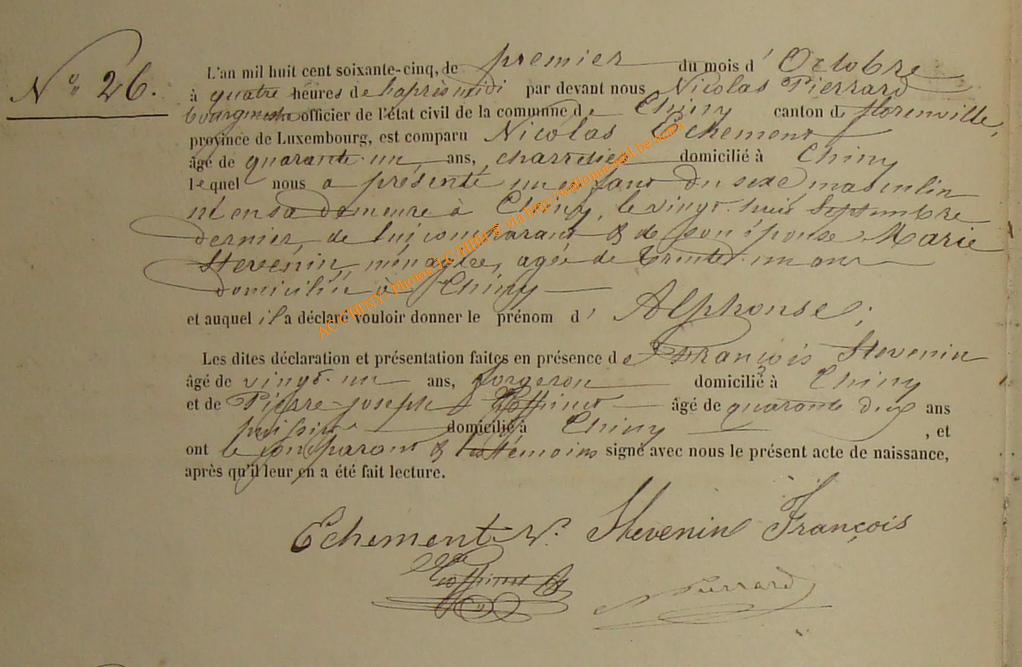 N° 26.
L'an mil huit cent soixante-cinq, de premier du mois d' Octobre
à quatre heures de l'après midi par devant nous Nicolas Pierrard
bourgmestre officier de l'état civil de la commune de Chiny canton de florenville,
province de Luxembourg, est comparu Nicolas Echement
âgé de quarante-un ans, charretier domicilié à Chiny
lequel nous a présenté un enfant du sexe masculin
né en sa demeure à Chiny, le vingt-huit Septembre
dernier, de lui comparant & de son épouse Marie
Stevenin, ménagère, agée de trente-un ans
domiciliée à Chiny
et auquel il a déclaré vouloir donner le prénom d' Alphonse;
Les dites déclaration et présentation faites en présence de François Stevenin
âgé de vingt-un ans, forgeron domicilié à Chiny
et de Pierre-Joseph Goffinet âgé de quarante deux ans
domicilié à Chiny , et
ont le comparant & les témoins signé avec nous le présent acte de naissance,
après qu'il leur en a été fait lecture.
Echement N. Stevenin François
Goffinet
Pierrard